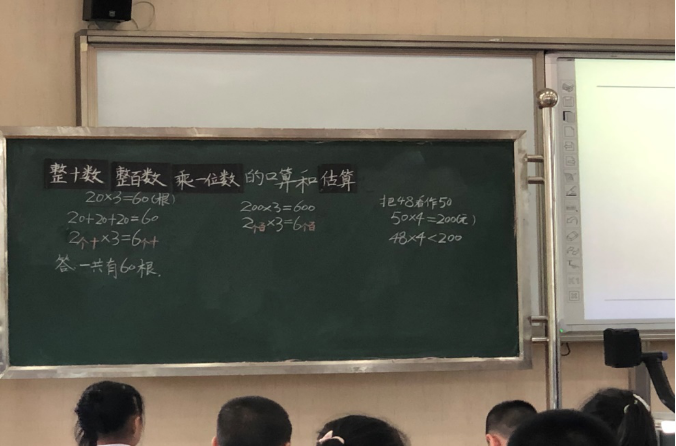 整十数 整百数 乘一位数 的口算和 估算
20×3=60(根)
20+20+20=60
2个十×3=6个十
答 一共有60根.
200×3=600
2个百×3=6个百
把48看作50
50×4=200(元)
48×4<200